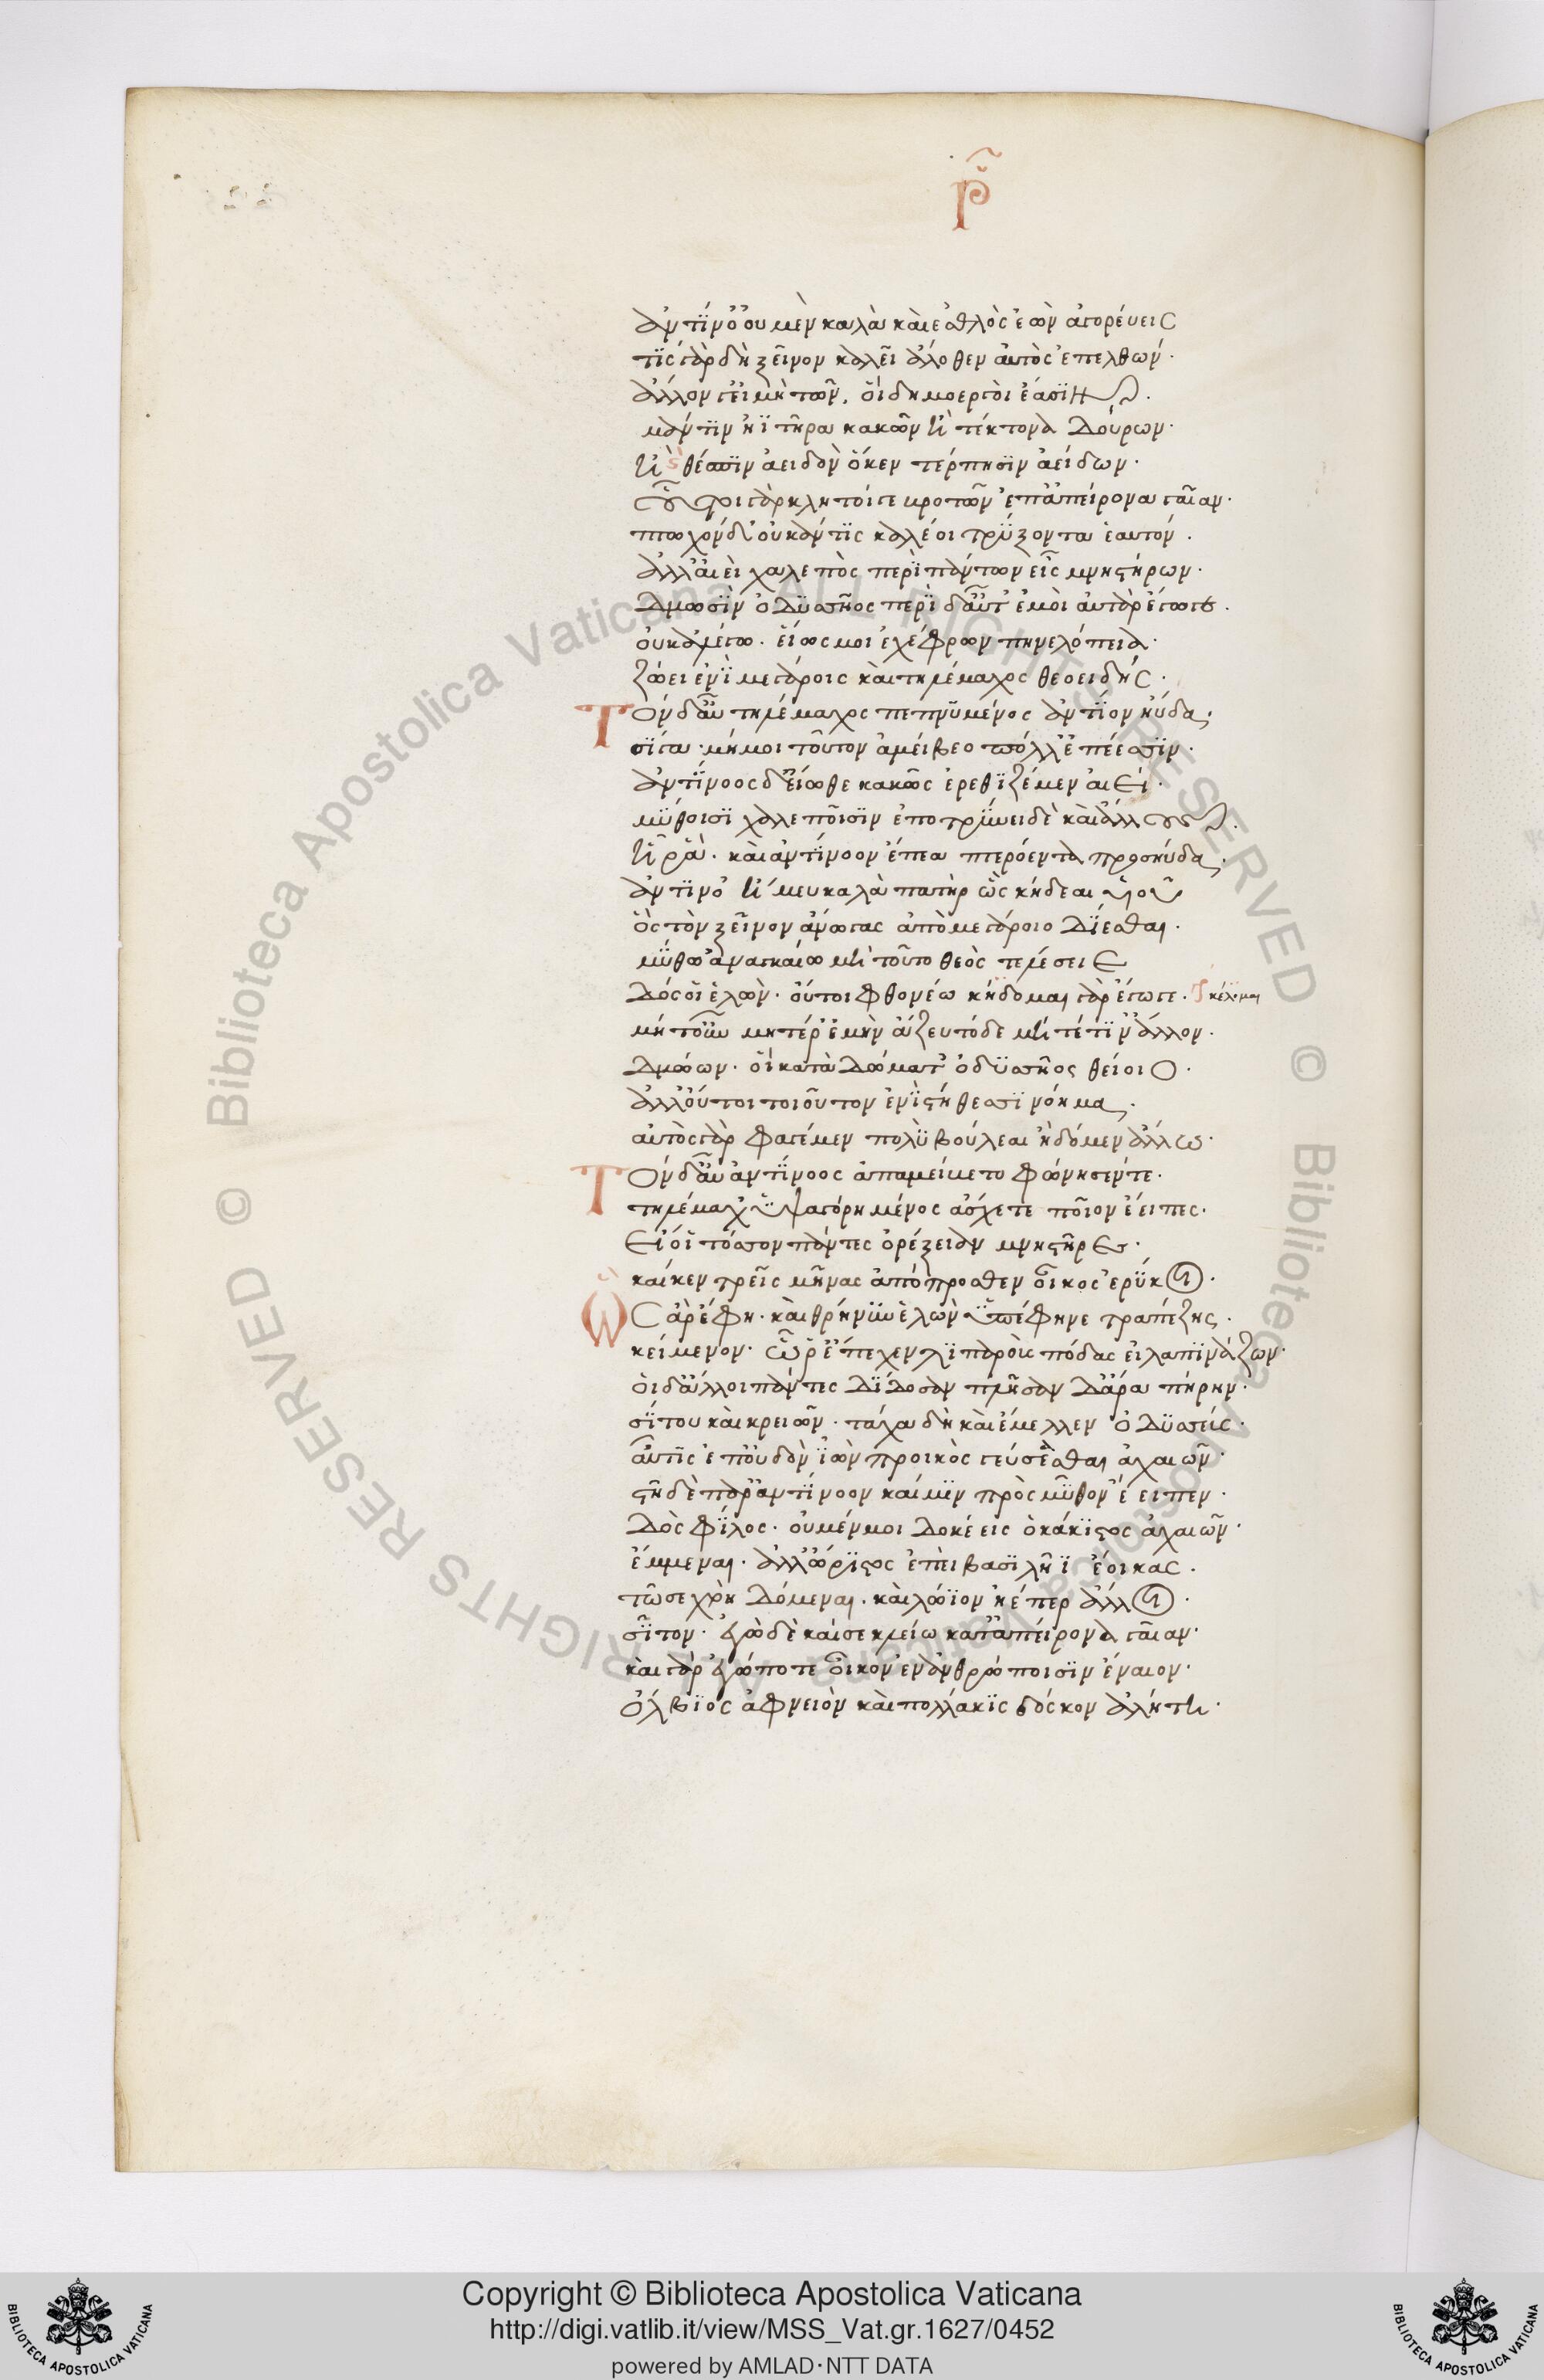 ρ̃
ἀντίνο᾽ οὐ μὲν καλὰ καὶ ἐσθλὸς ἐὼν ἀγορεύεις
τίς γὰρ δὴ ξεῖνον καλεῖ ἄλοθεν αὐτὸς ἐπελθών·
ἄλλον γ᾽ εἰ μὴ τῶν, οἳ δημοεργοὶ ἔασιν·
μάντιν ἢ ἰητῆρα κακῶν ἢ τέκτονα δούρων·
ἢ θέσπιν ἀειδὸν ὅ κεν τέρπησιν ἀείδων·
οὗτοι γὰρ κλητοί γε βροτῶν ἐπ᾽ ἀπείρονα γαῖαν·
πτωχὸν δ᾽ οὐκ ἄν τις καλέοι τρύξοντα ἑαυτόν·
ἀλλ᾽ αἰεὶ χαλεπὸς περὶ πάντων εἶς μνηστήρων·
δμωσὶν ὀδυσσῆος περὶ δ᾽ αὖτ᾽ ἐμοὶ αὐτὰρ ἔγωγε·
οὐκ ἀλέγω· εἵως μοι ἐχέφρων πηνελόπεια·
ζώει ἐνὶ μεγάροις καὶ τηλέμαχος θεοειδής·
Τὸν δ᾽ αὖ τηλέμαχος πεπνυμένος ἀντίον ηὔδα·
σίγα· μή μοι τοῦτον ἀμείβεο πόλλ᾽ ἐπέεσσιν·
ἀντίνοος δ᾽ εἴωθε κακῶς ἐρεθιζέμεν αἰεί·
μύθοισι χαλεποῖσιν ἐποτρύνει δὲ καὶ ἄλλους·
ἦ ῥα· καὶ ἀντίνοον ἔπεα πτερόεντα προσηύδα·
ἀντίνο᾽ ἦ μευ καλὰ πατὴρ ὣς κήδεαι υἱοῦ
ὃς τὸν ξεῖνον ἄνωγας ἀπὸ μεγάροιο δίεσθαι·
μύθω ἀναγκαίω μὴ τοῦτο θεὸς τελέσειε
δός οἱ ἑλών· οὔτοι φθονέω κήδομαι γὰρ ἔγωγε· κέλομαι
μήτ᾽ οὖν μητέρ᾽ ἐμὴν ἅζευ τόδε μήτέ τιν᾽ ἄλλον·
δμώων· οἳ κατὰ δώματ᾽ ὀδυσσῆος θείοιο·
ἀλλ᾽ οὔτοι τοιοῦτον ἐνὶ στήθεσσι νόημα·
αὐτὸς γὰρ φαγέμεν πολὺ βούλεαι ἢ δόμεν ἄλλω·
Τὸν δ᾽ αὖ ἀντίνοος ἀπαμείβετο φώνησέν τε·
τηλέμαχ᾽ ὑψαγόρη μένος ἄσχετε ποῖον ἔειπες·
εἴ οἱ τόσσον πάντες ὀρέξειαν μνηστῆρες·
καί κεν τρεῖς μῆνας ἀπόπροσθεν οἶκος ἐρύκοι·
Ὣς ἄρ᾽ ἔφη· καὶ θρῆνυν ἑλὼν ὑπέφηνε τραπέζης·
κείμενον· ᾧ ῥ᾽ ἔπεχεν λιπαροὺς πόδας εἰλαπινάζων·
οἱ δ᾽ ἄλλοι πάντες δίδοσαν πλῆσαν δ᾽ ἄρα πήρην·
σίτου καὶ κρειῶν· τάχα δὴ καὶ ἔμελλεν ὀδυσσεύς·
αὖτις ἐπ᾽ οὐδὸν ἰὼν προικὸς γεύσεσθαι ἀχαιῶν·
στῆ δὲ παρ᾽ ἀντίνοον καί μιν πρὸς μῦθον ἔειπεν·
δὸς φίλος· οὐ μέν μοι δοκέεις ὁ κάκιστος ἀχαιῶν·
ἔμμεναι· ἀλλ᾽ ὤριστος ἐπεὶ βασιλῆϊ ἔοικας·
τῶ σε χρὴ δόμεναι· καὶ λώϊον ἠέ περ ἄλλοι·
σῖτον· ἐγὼ δὲ καί σε κλείω κατ᾽ ἀπείρονα γαῖαν·
καὶ γὰρ ἐγώ ποτε οἶκον ἐν ἀνθρώποισιν ἔναιον·
ὄλβιος ἀφνειὸν καὶ πολλάκις δόσκον ἀλήτη·
Copyright © Biblioteca Apostolica Vaticana
http://digi.vatlib.it/view/MSS_Vat.gr.1627/0452
powered by AMLAD·NTT DATA
BIBLIOTECA APOSTOLICA VATICANA
BIBLIOTECA APOSTOLICA VATICANA
© Biblioteca Apostolica Vaticana ALL RIGHTS RESERVED © Biblioteca Apostolica Vaticana ALL RIGHTS RESERVED